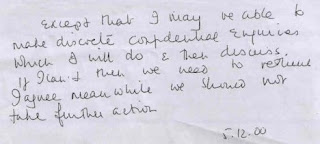 except that I may be able to
make discrete confidential enquiries
which I will do & then discuss.
If I can't then we need to rethink
I agree meanwhile we should not
take further action
5.12.00